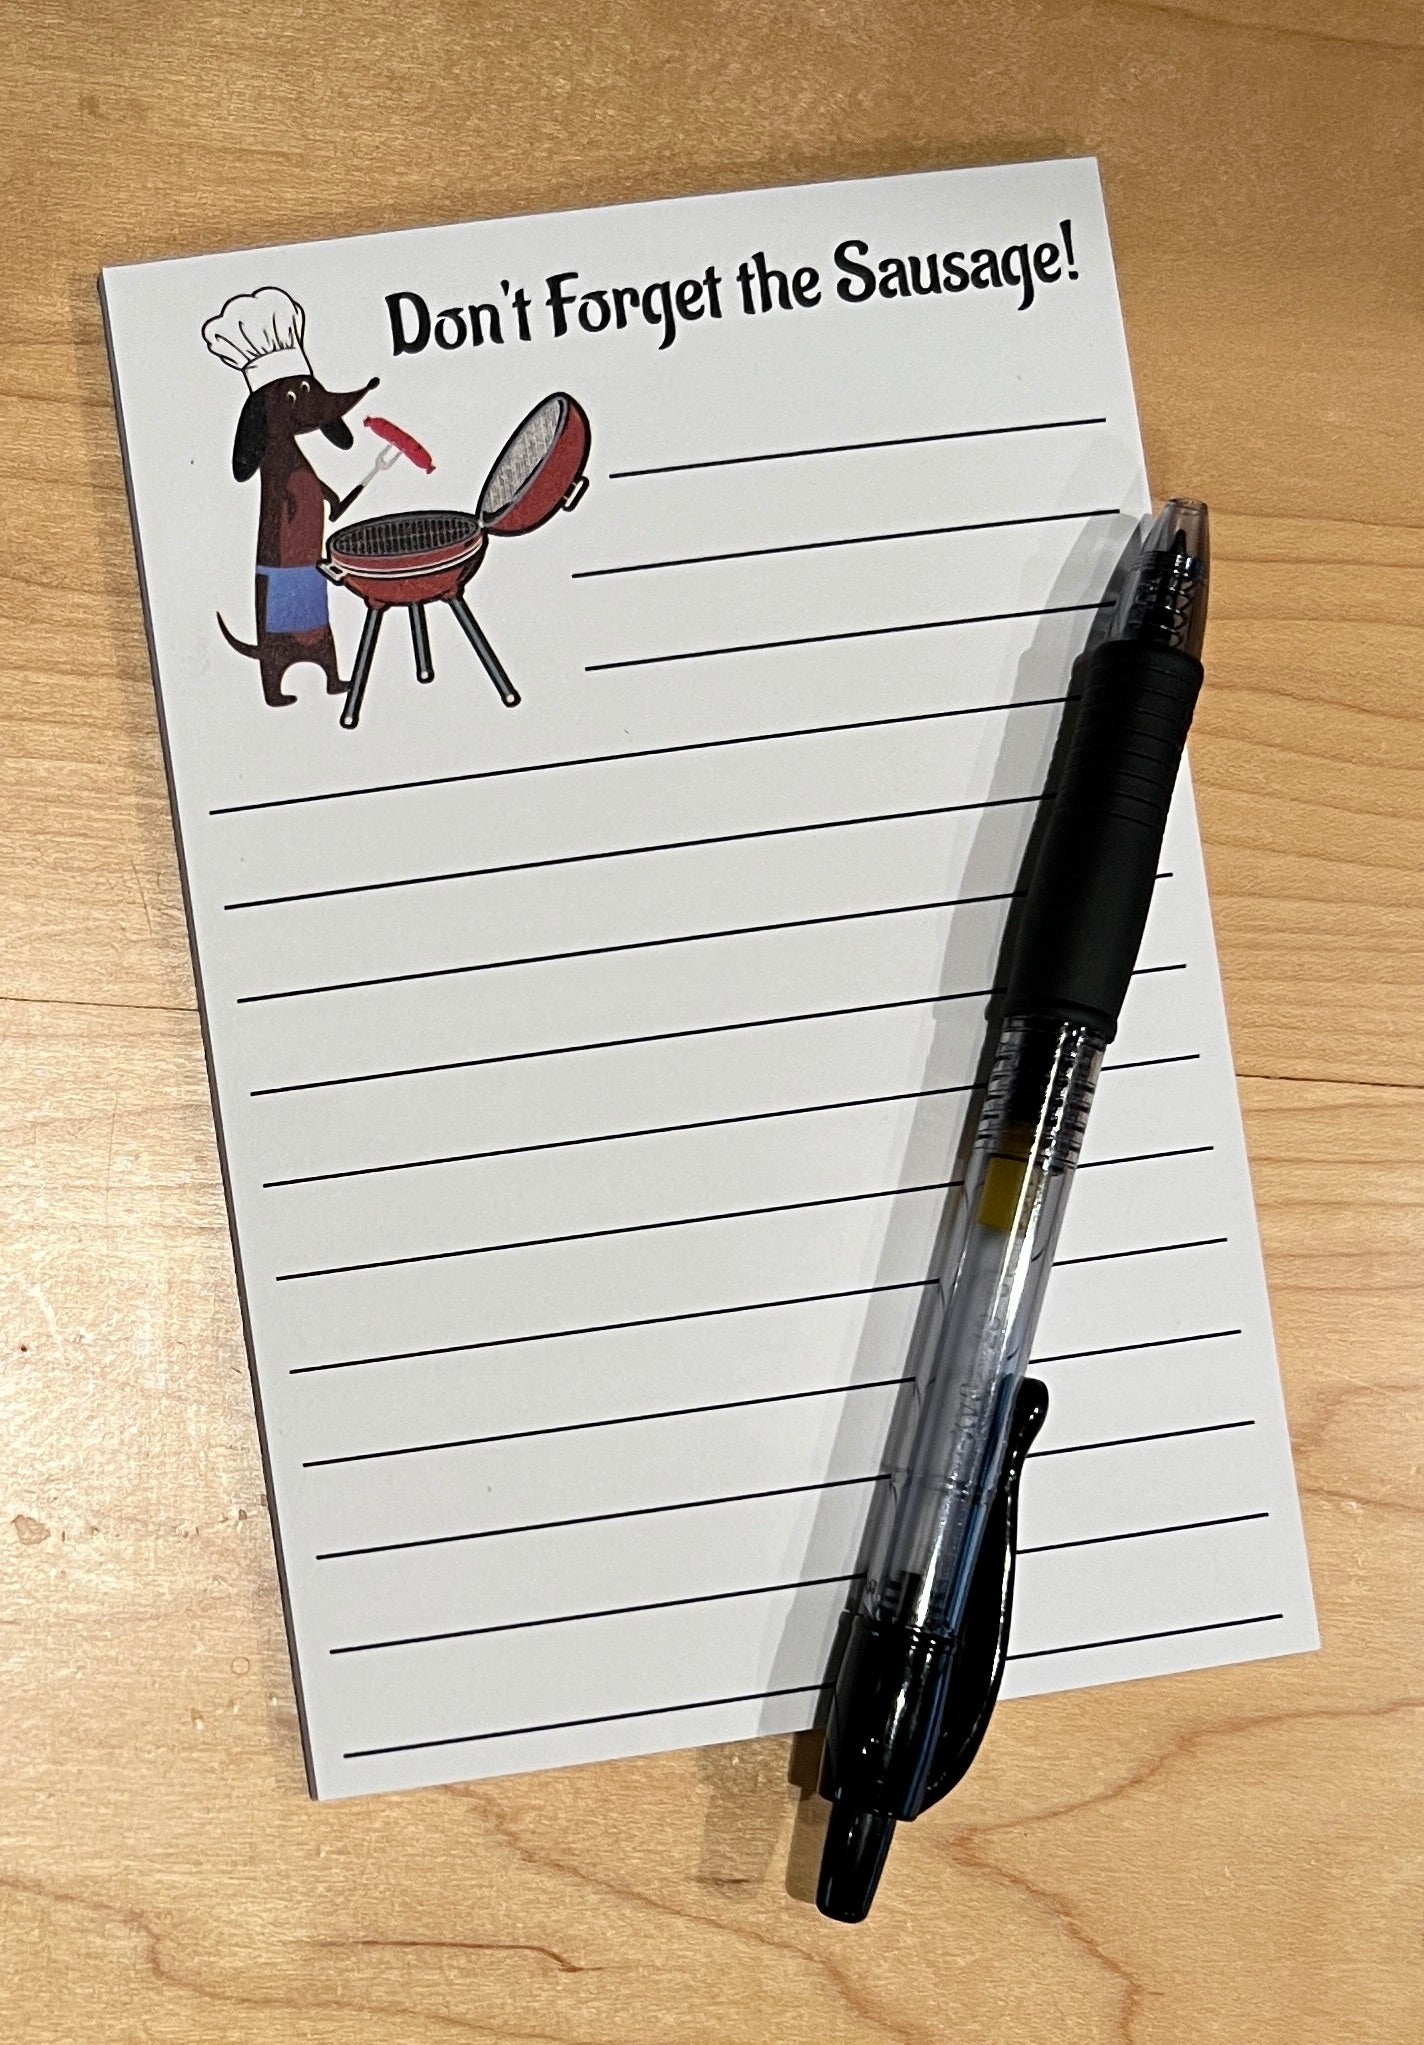 Don't Forget the Sausage!